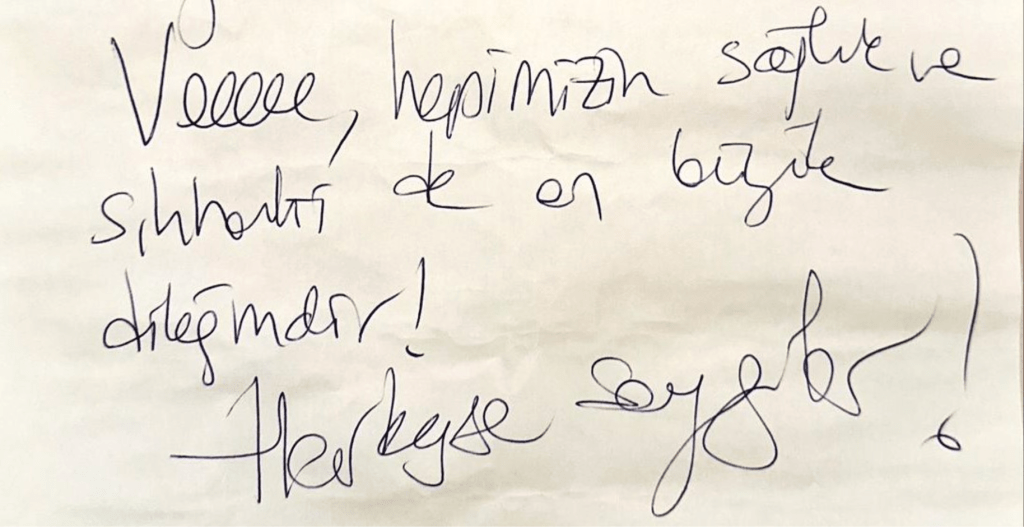 Veeeee, hepimizin sağlık ve
sıhhati de en büyük
dileğimdir!
Herkese saygılar!